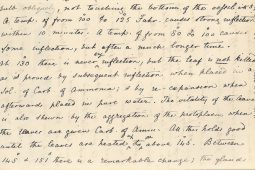 bulb obliquely, not touching the bottom of the vessel with it,
A temp. of from 120 to 125 Fahr. causes strong inflection
within 10 minutes. A temp. of from 80 to 100 causes
some inflection, but after a much longer time.
At 130 there is never inflection, but the leaf is not killed
as is proved by subsequent inflection when placed in a
Sol. of Carb of Ammonia; & by re-expansion when
afterwards placed in pure water. The vitality of the leaves
is also shewn by the aggregation of the protoplasm when
the leaves are given Carb of Ammon. All this holds good
until the leaves are heated to above 145. Between
145 & 151 there is a remarkable change; the glands